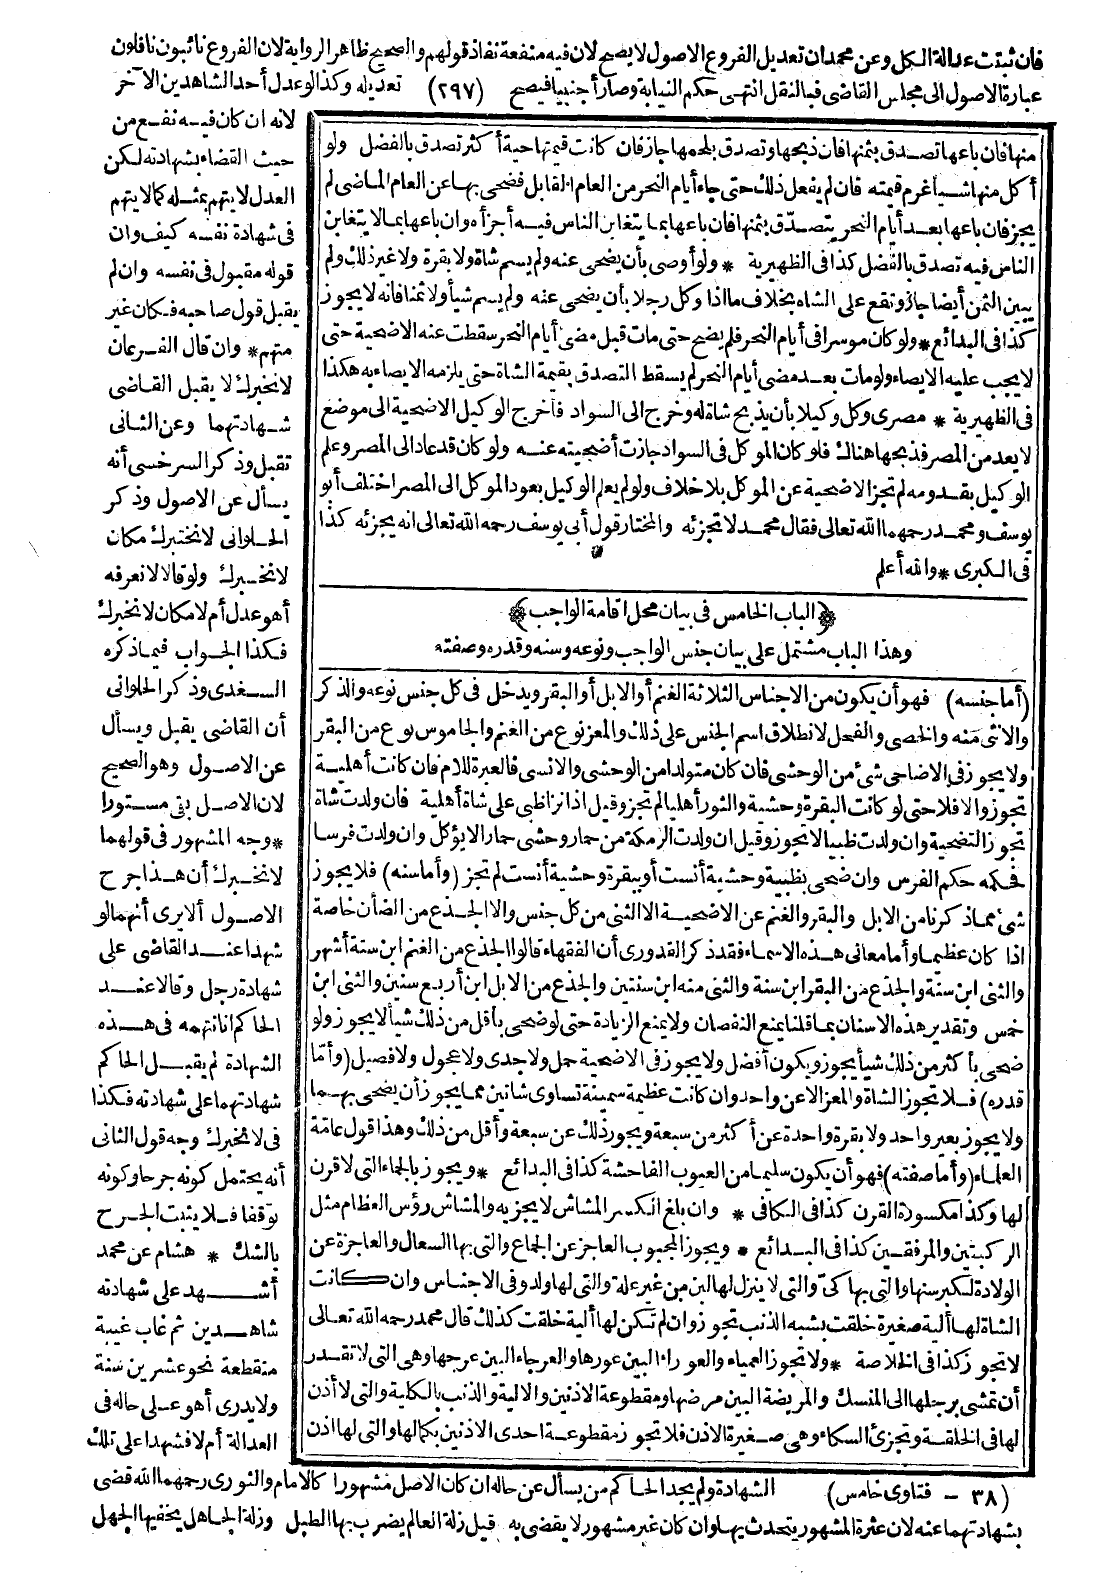 فان ثبتت عدالة الكل وعن محمدان تعديل الفروع الاصول لا يصح لان فيه منفعة نفاذ قولهم والصحيح ظاهر الرواية لان الفروع نائبون ناقلون
عبارة الاصول الى مجلس القاضى فبالنقل انتهى حكم النيابة وصار أجنبيا فيصح (٢٩٧) تعديله وكذا لو عدل أحد الشاهدين الآخر
لانه ان كان فيه نفع من
حيث القضاء بشهادته لكن
العدل لا يتهم بمثله كما لا يتهم
فى شهادة نفسه كيف وان
قوله مقبول فى نفسه وان لم
يقبل قول صاحبه فكان غير
متهم* وان قال الفرعان
لا نخبرك لا يقبل القاضى
شهادتهما وعن الثانى
تقبل وذكر السرخسى أنه
يسأل عن الاصول وذكر
الحلوانى لا نختبرك مكان
لا نخبرك ولو قالا لا نعرفه
أهو عدل أم لا مكان لا نخبرك
فكذا الجواب فيما ذكره
السغدى وذكر الحلوانى
أن القاضى يقبل ويسأل
عن الاصول وهو الصحيح
لان الاصل بقى مستورا
*وجه المشهور فى قولهما
لا نخبرك أن هذا جرح
الاصول ألا يرى أنهما لو
شهدا عند القاضى على
شهادة رجل وقالا عند
الحاكم انا نتهمه فى هذه
الشهادة لم يقبل الحاكم
شهادتهما على شهادته فكذا
فى لا نخبرك وجه قول الثانى
أنه يحتمل كونه جرحا وكونه
توقفا فلا يثبت الجرح
بالشك * هشام عن محمد
أشهد على شهادته
شاهدين ثم غاب غيبة
منقطعة نحو عشرين سنة
ولا يدرى أهو على حاله فى
العدالة أم لا فشهدا على تلك
منها فان باعها تصدق بثمنها فان ذبحها وتصدق بلحمها جاز فان كانت قيمتها حية أكثر تصدق بالفضل ولو
أكل منها شيأ غرم قيمته فان لم يفعل ذلك حتى جاء أيام النحر من العام القابل فضحى بها عن العام الماضى لم
يجز فان باعها بعد أيام النحر يتصدق بثمنها فان باعها بما يتغابن الناس فيه أجزأه وان باعها بما لا يتغابن
الناس فيه تصدق بالفضل كذا فى الظهيرية * ولو أوصى بأن يضحى عنه ولم يسم شاة ولا بقرة ولا غير ذلك ولم
يبين الثمن أيضا جاز وتقع على الشاه بخلاف ما اذا وكل رجلا بأن يضحى عنه ولم يسم شيأ ولا ثمنا فانه لا يجوز
كذا فى البدائع * ولو كان موسرا فى أيام النحر فلم يضح حتى مات قبل مضى أيام النحر سقطت عنه الاضحية حتى
لا يجب عليه الايصاء ولو مات بعد مضى أيام النحر لم يسقط التصدق بقيمة الشاة حتى يلزمه الايصاء به هكذا
فى الظهيرية * مصرى وكل وكيلا بأن يذبح شاة له وخرج الى السواد فأخرج الوكيل الاضحية الى موضع
لا يعد من المصر فذبحها هناك فلو كان الموكل فى السواد جازت أضحيته عنه ولو كان قد عاد الى المصر وعلم
الوكيل بقدومه لم تجز الاضحية عن الموكل بلا خلاف ولو لم يعلم الوكيل بعود الموكل الى المصر اختلف أبو
يوسف ومحمد رحمهما الله تعالى فقال محمد لا تجزئه والمختار قول أبى يوسف رحمه الله تعالى انه يجزئه كذا
فى الكبرى * والله أعلم
﴿الباب الخامس فى بيان محل اقامة الواجب﴾
وهذا الباب مشتمل على بيان جنس الواجب ونوعه وسنه وقدره وصفته
(أما جنسه) فهو أن يكون من الاجناس الثلاثة الغنم أو الابل أو البقر ويدخل فى كل جنس نوعه والذكر
والانثى منه والخصى والفحل لانطلاق اسم الجنس على ذلك والمعز نوع من الغنم والجاموس نوع من البقر
ولا يجوز فى الاضاحى شئ من الوحشى فان كان متولدا من الوحشى والانسى فالعبرة للام فان كانت أهلية
تجوز والا فلا حتى لو كانت البقرة وحشية والثور أهليا لم تجز وقيل اذا نزا ظبى على شاة أهلية فان ولدت شاة
تجوز التضحية وان ولدت ظبيا لا يجوز وقيل ان ولدت الرمكة من حمار وحشى حمارا لا يؤكل وان ولدت فرسا
فحكمه حكم الفرس وان ضحى بظبية وحشية أنست أو ببقرة وحشية أنست لم تجز (وأما سنه) فلا يجوز
شئ مما ذكرنا من الابل والبقر والغنم عن الاضحية الا الثنى من كل جنس والا الجذع من الضأن خاصة
اذا كان عظيما وأما معانى هذه الاسماء فقد ذكر القدورى أن الفقهاء قالوا الجذع من الغنم ابن ستة أشهر
والثنى ابن سنة والجذع من البقر ابن سنة والثنى منه ابن سنتين والجذع من الابل ابن أربع سنين والثنى ابن
خمس وتقدير هذه الاسنان بما قلنا يمنع النقصان ولا يمنع الزيادة حتى لو ضحى بأقل من ذلك شيأ لا يجوز ولو
ضحى بأكثر من ذلك شيأ يجوز ويكون أفضل ولا يجوز فى الاضحية حمل ولا جدى ولا عجول ولا فصيل (وأما
قدره) فلا تجوز الشاة والمعز الا عن واحد وان كانت عظيمة سمينة تساوى شاتين مما يجوز أن يضحى بهما
ولا يجوز بعير واحد ولا بقرة واحدة عن أكثر من سبعة ويجوز ذلك عن سبعة وأقل من ذلك وهذا قول عامة
العلماء (وأما صفته) فهو أن يكون سليما من العيوب الفاحشة كذا فى البدائع * ويجوز بالجماء التى لا قرن
لها وكذا مكسورة القرن كذا فى الكافى * وان بلغ الكسر المشاش لا يجزيه والمشاش رؤس العظام مثل
الركبتين والمرفقين كذا فى البدائع * ويجوز المجبوب العاجز عن الجماع والتى بها السعال والعاجزة عن
الولادة لكبر سنها والتى بها كى والتى لا ينزل لها لبن من غير علة والتى لها ولد وفى الاجناس وان كانت
الشاة لها ألية صغيرة خلقت بشبه الذنب تجوز وان لم تكن لها ألية خلقت كذلك قال محمد رحمه الله تعالى
لا تجوز كذا فى الخلاصة * ولا تجوز العمياء والعوراء البين عورها والعرجاء البين عرجها وهى التى لا تقدر
أن تمشى برجلها الى المنسك والمريضة البين مرضها ومقطوعة الاذنين والالية والذنب بالكلية والتى لا أذن
لها فى الخلقة وتجزئ السكاء وهى صغيرة الاذن فلا تجوز مقطوعة احدى الاذنين بكمالها والتى لها اذن
(٣٨ - فتاوى خامس) الشهادة ولم يجد الحاكم من يسأل عن حاله ان كان الاصل مشهورا كالامام والثورى رحمهما الله قضى
بشهادتهما عنه لان عثرة المشهور يتحدث بها وان كان غير مشهور لا يقضى به قيل زلة العالم يضرب بها الطبل وزلة الجاهل يخفيها الجهل